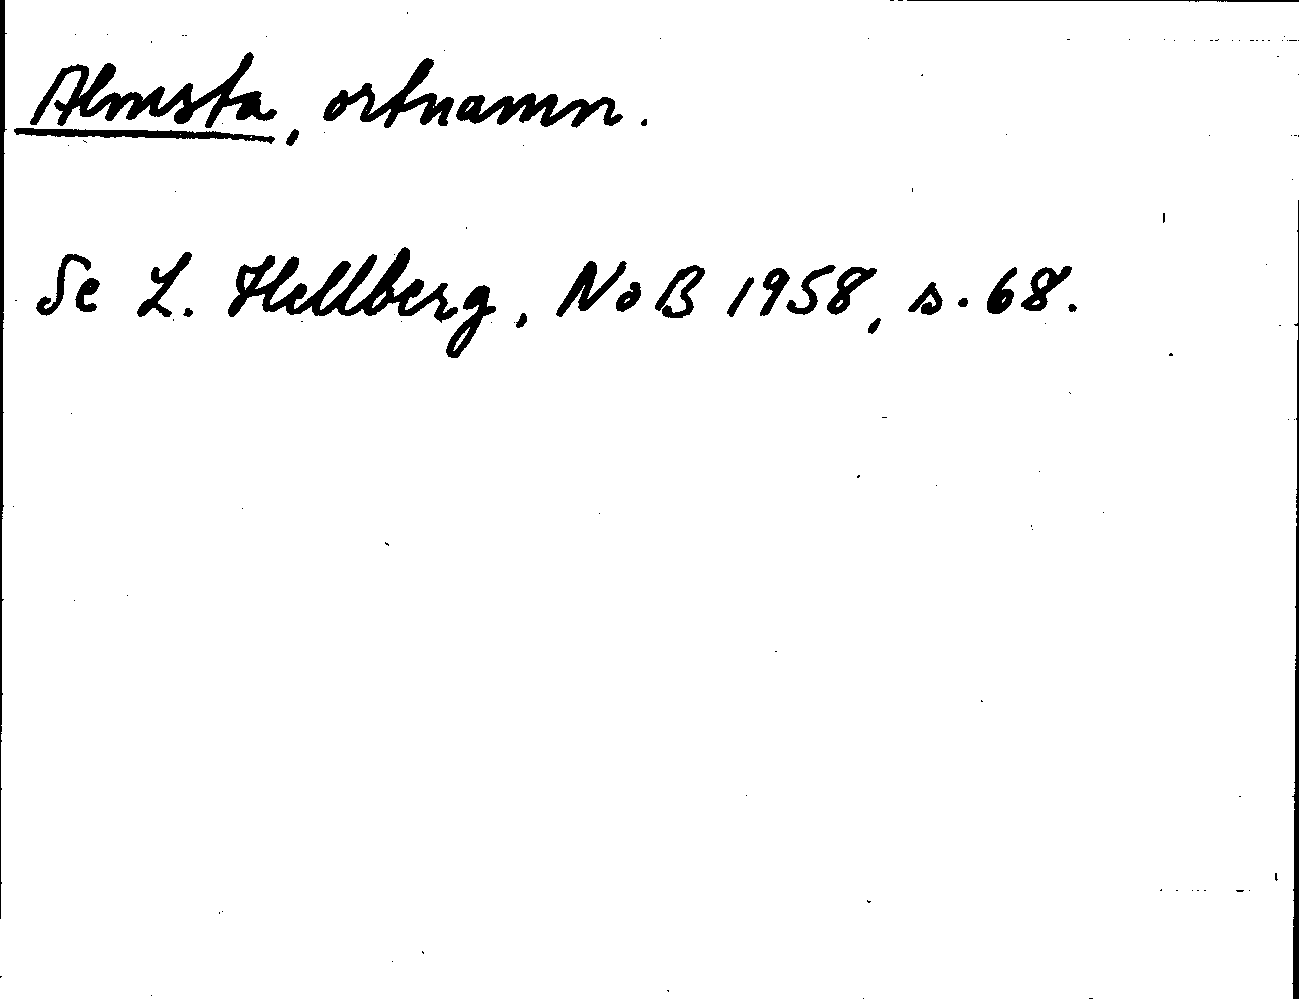 Almsta, ortnamn.
Se L. Hellberg, NoB 1958, s. 68.